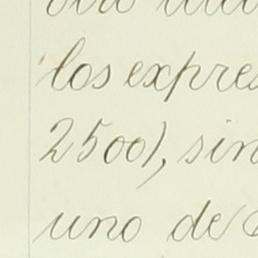 los expres
2500), sin
uno de